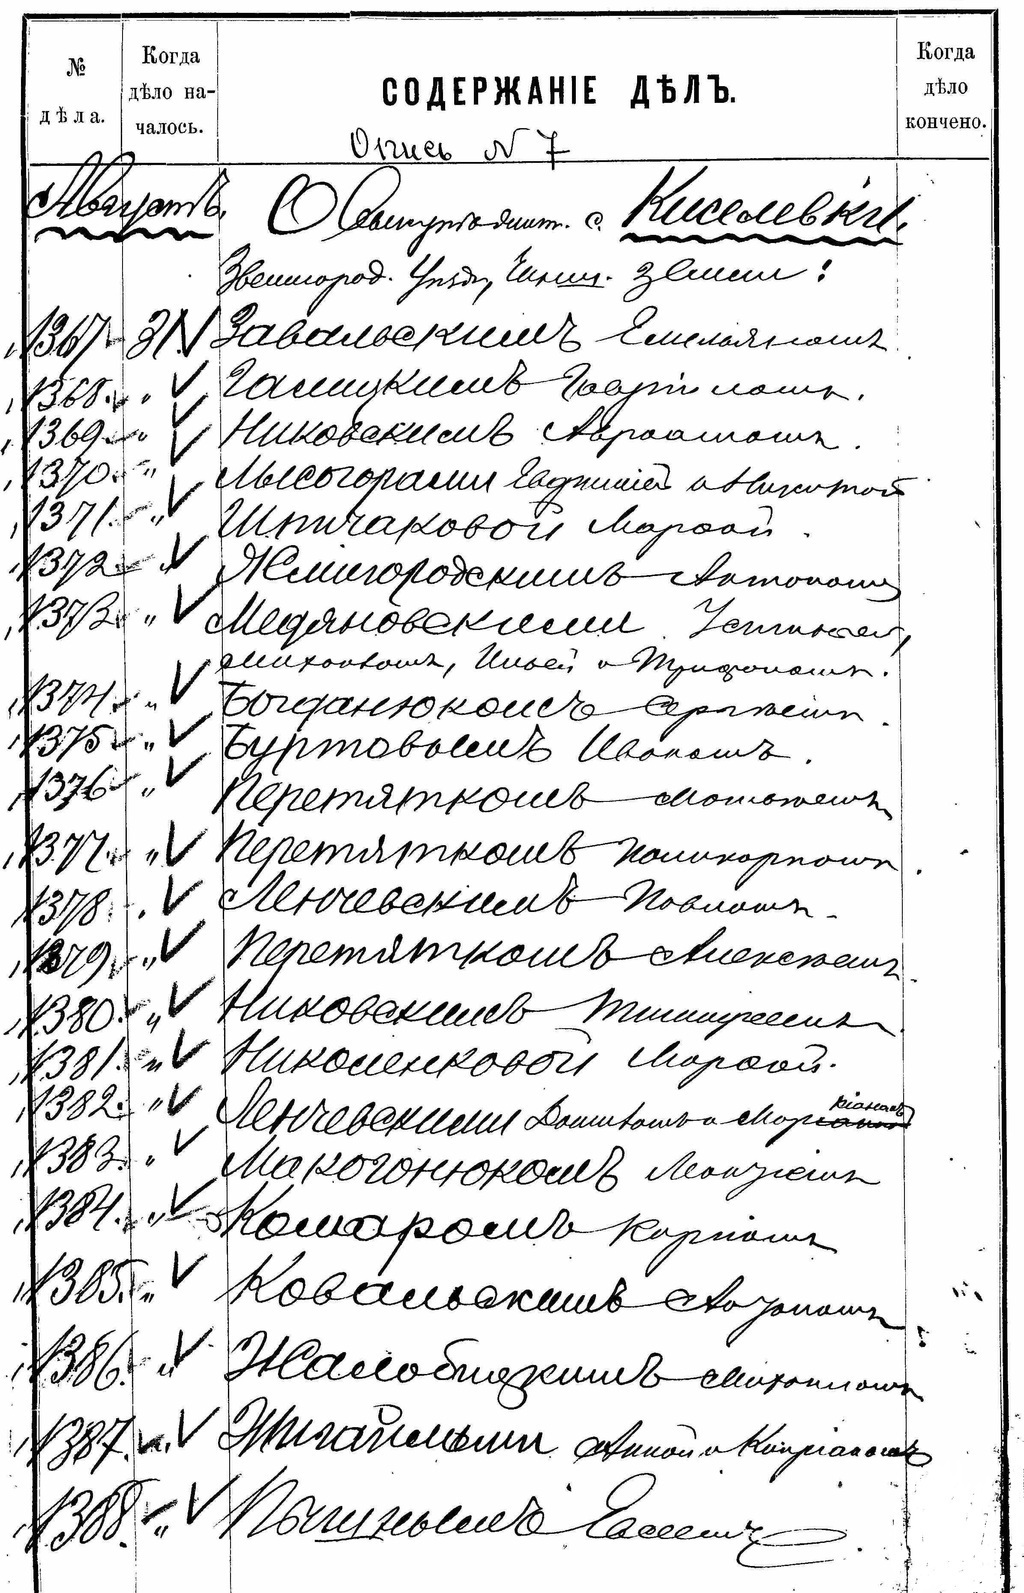 № дѣла.
Когда дѣло на-
чалось.
СОДЕРЖАНІЕ ДѢЛЪ.
Когда дѣло кончено.
Опись N 7
Августъ. О с. Киселевки.
Звенигород. Уѣзд, земли:
1367 31 Завальскимъ Емельяномъ
1368. " Галицкимъ Гавріиломъ.
1369 " Никовскимъ Авраамомъ.
1370. " Лысогорами Евфиміей и Никитой
1371. " Шпичаковой Марфой.
1372 " Жмигородскимъ Антономъ
1373 " Медяновскими Устиніей,
Михаиломъ, Ильей и Трифономъ.
1374. " Богданюкомъ Сергѣемъ.
1375 " Буртовымъ Иваномъ.
1376 " Перетяткомъ Матвѣемъ
1377. " Перетяткомъ Поликарпомъ.
1378. " Ленчевскимъ Павломъ.
1379, " Перетяткомъ Алексѣемъ
1380. " Никовскимъ Тимофеемъ
1381. " Николенковой Марфой.
1382. " Ленчевскими и Маркіаномъ
1383. " Макогонюкомъ
1384. " Комаромъ Карпомъ
1385. " Ковальскимъ
1386. " Жалобицкимъ Михаиломъ
1387. " Жигайлыми Анной и Кипріаномъ
1388. " Евсеемъ.